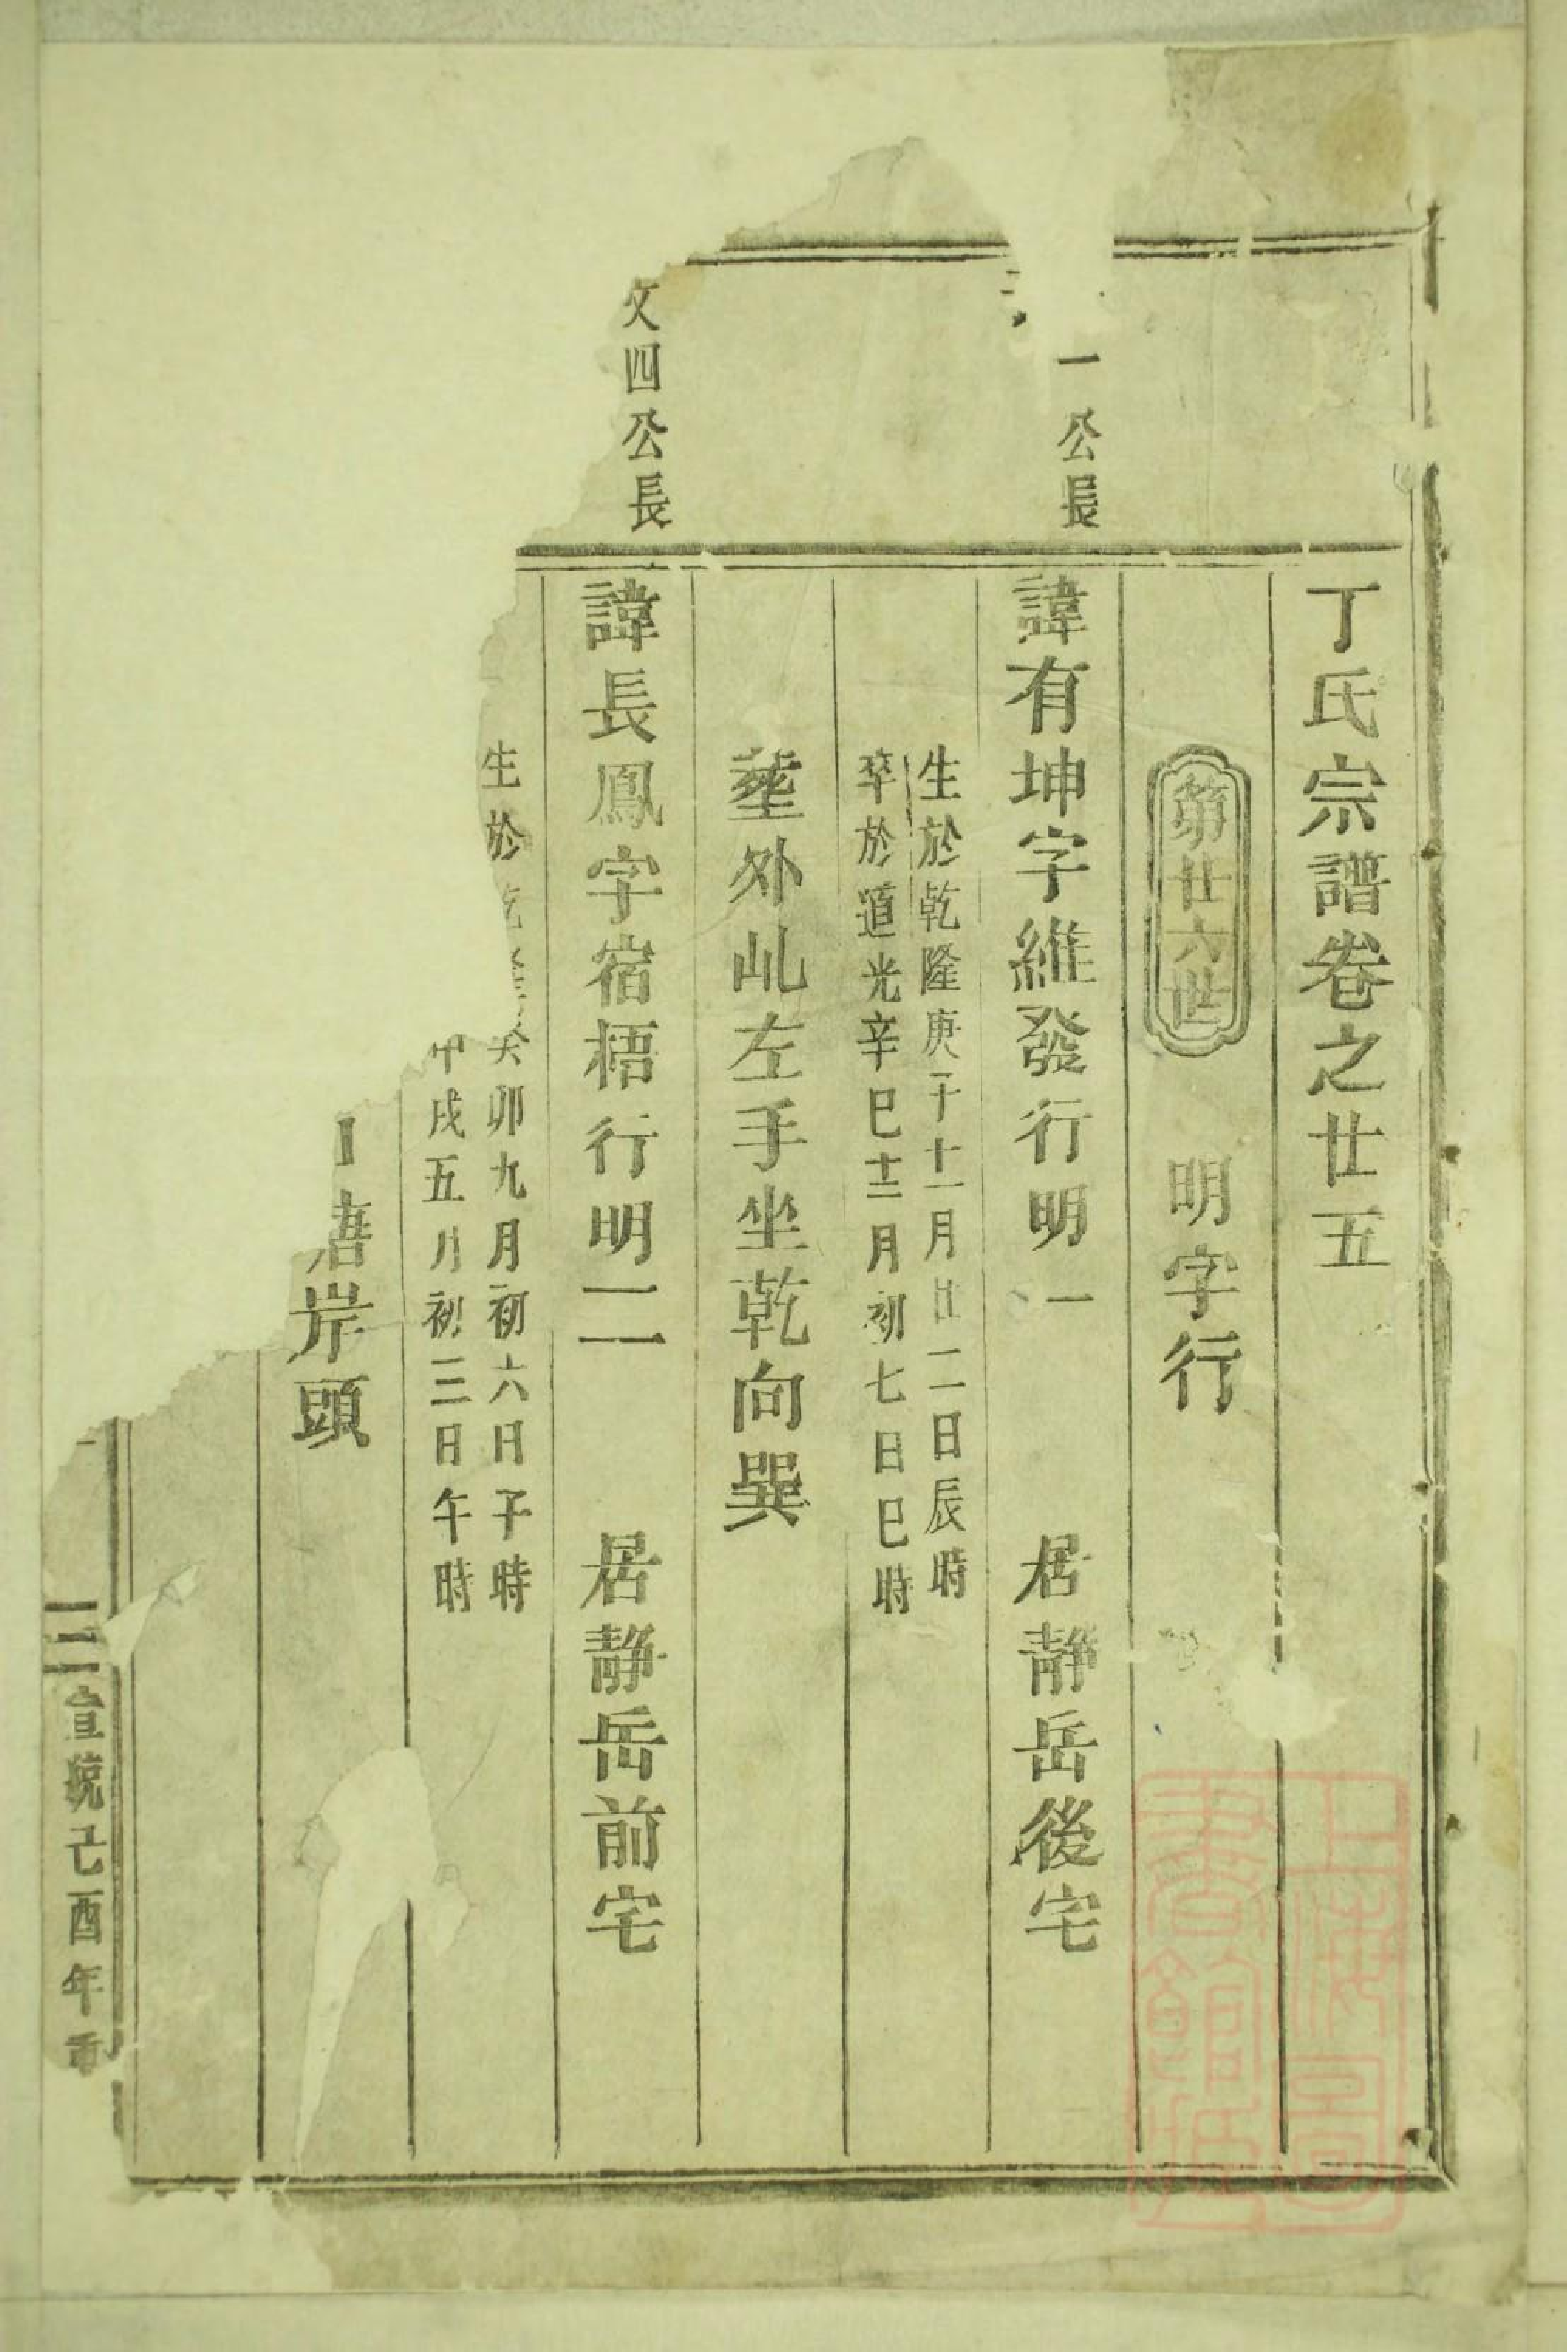 丁氏宗譜卷之廿五
第廿六世 明字行
一公長
諱有坤字維發行明一 居靜岳後宅
生於乾隆庚子十一月廿二日辰時
卒於道光辛巳十二月初七日巳時
塟外乢左手坐乾向巽
文四公長
諱長鳳字宿梧行明二 居靜岳前宅
生於乾隆癸卯九月初六日子時
甲戌五月初三日午時
岸頭
宣統己酉年重
上海圖書館藏